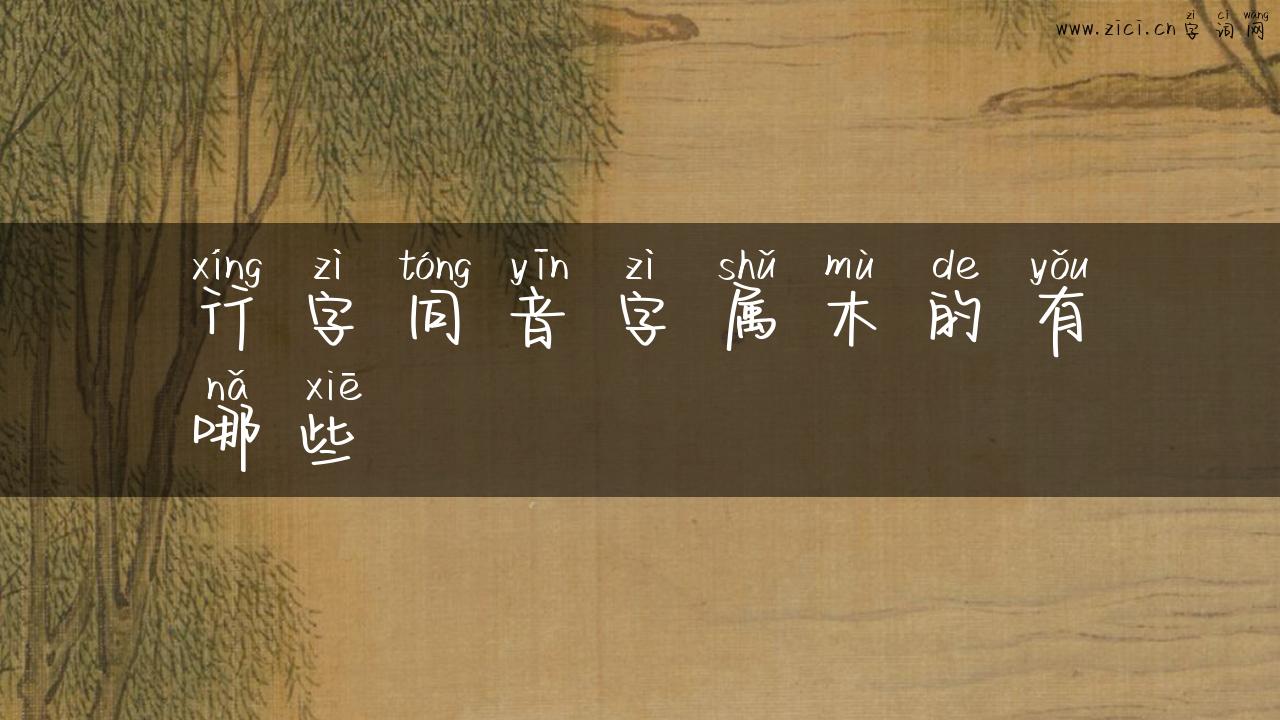 zì cí wǎng
www.zici.cn 字词网
xíng zì tóng yīn zì shǔ mù de yǒu
行字同音字属木的有
nǎ xiē
哪些